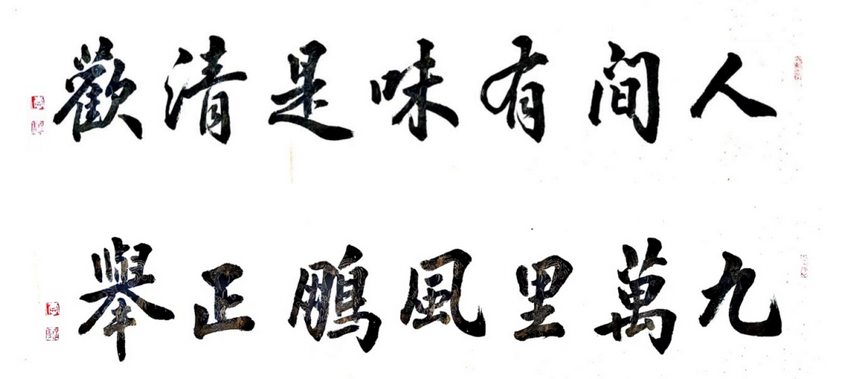 人間有味是清歡
九萬里風鵬正舉